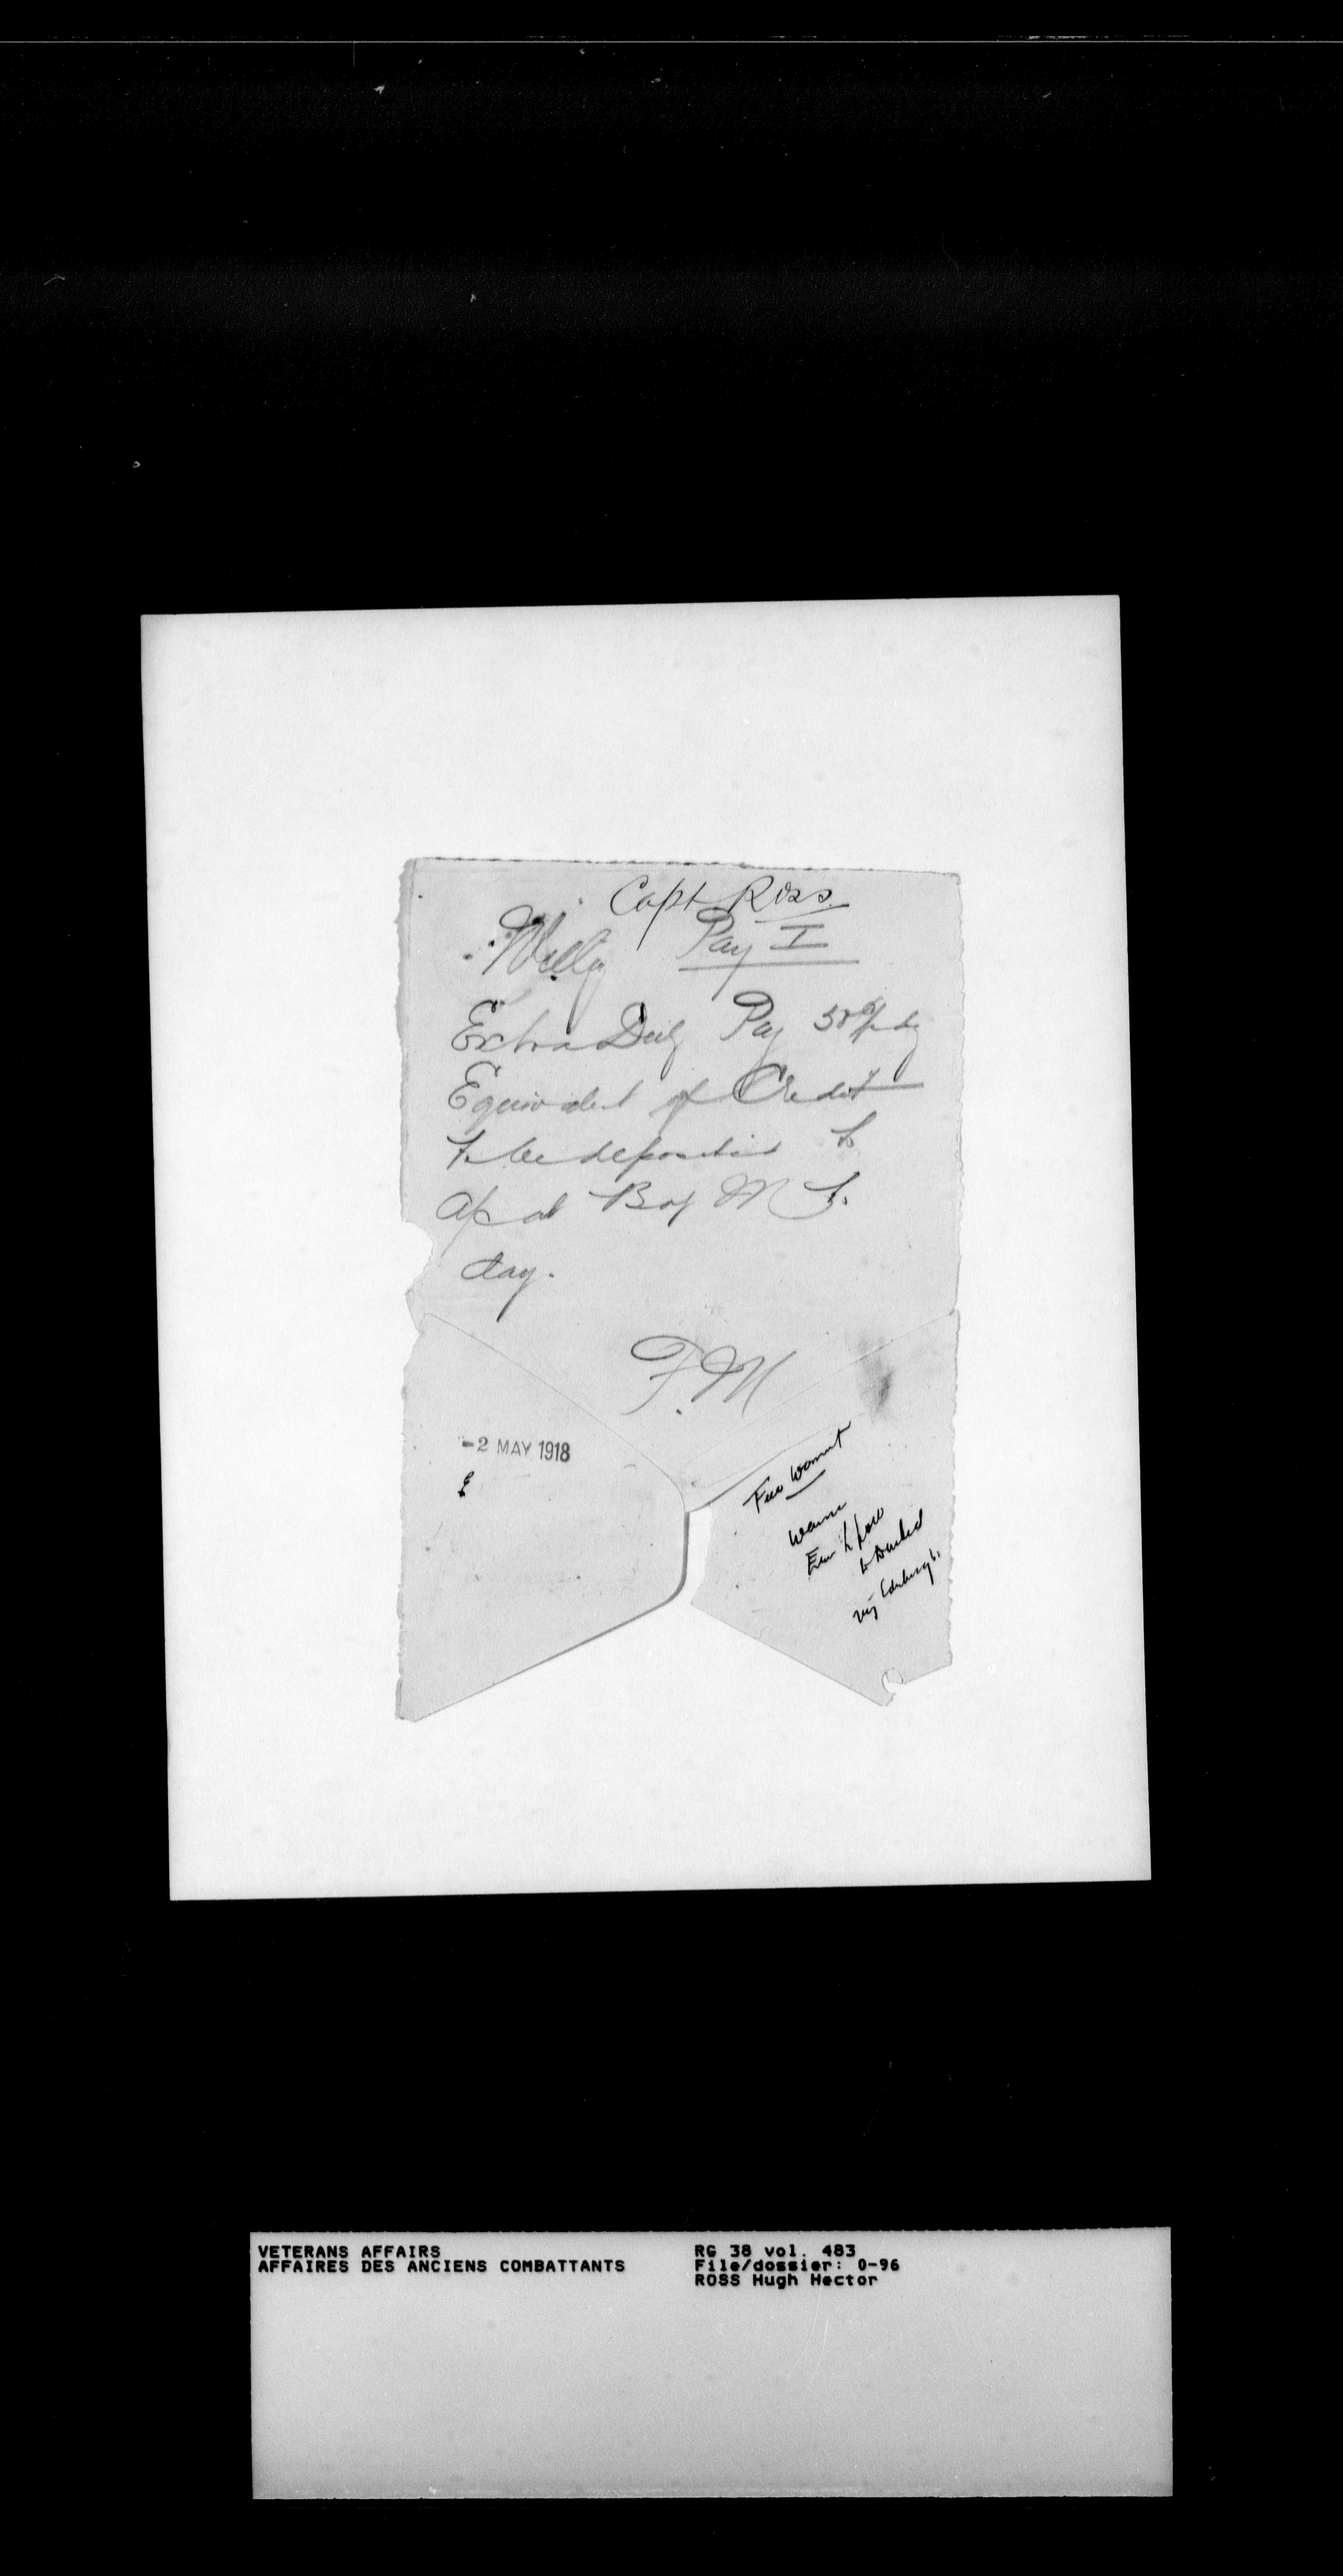 Capt. Ross.
Willy Pay I
Extra Duty Pay 50¢ p dy
Equivalent of Credit
to be deposited to
a/c at B of M to
day.
F.M
-2 MAY 1918
Free Warrant
to
Edinburgh.
VETERANS AFFAIRS
AFFAIRES DES ANCIENS COMBATTANTS
RG 38 vol. 483
File/dossier: 0-96
ROSS Hugh Hector